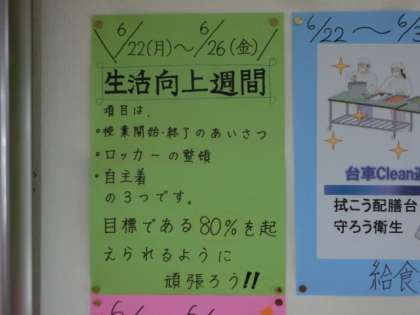 6/22(月)～6/26(金)
生活向上週間
項目は、
・授業開始・終了のあいさつ
・ロッカーの整頓
・自主着
の3つです。
目標である80%を起
えられるように
頑張ろう!!
6/22～6/3
台車Clean週
拭こう配膳台
守ろう衛生
給食